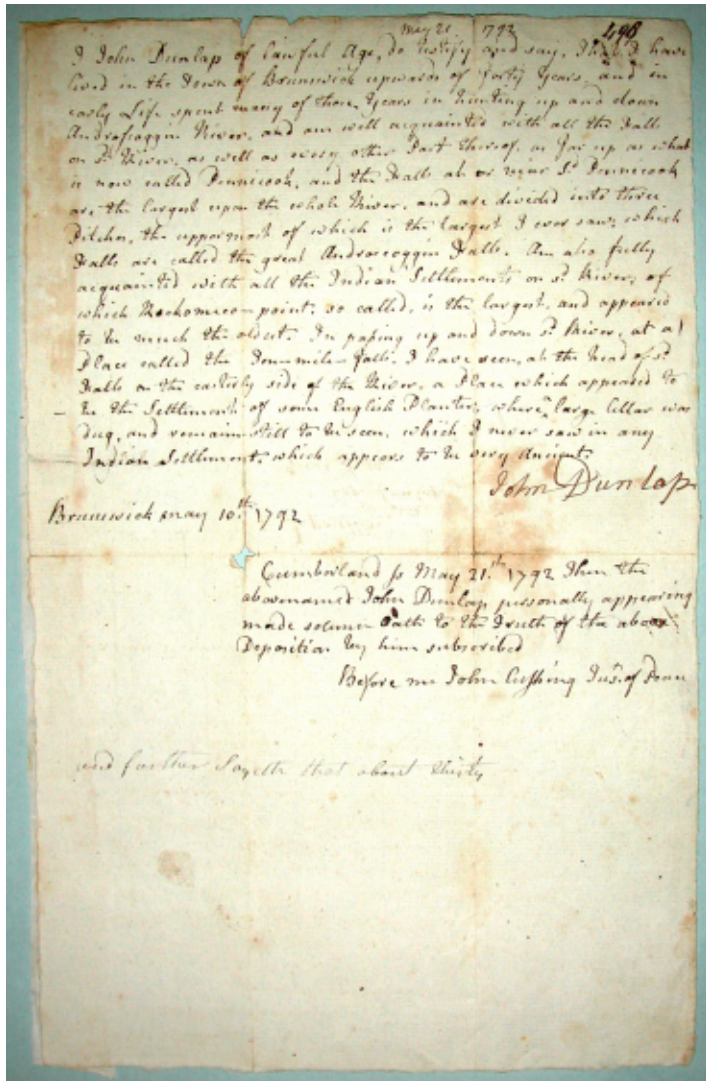 May 21 1792
498
I John Dunlap of lawful Age, do testify and say, That I have
lived in the Town of Brunswick upwards of forty Years, and in
early Life spent many of those Years in hunting up and down
Androscoggin River, and am well acquainted with all the Falls
on sd. River, as well as every other Part thereof, as far up as what
is now called Pennicook, and the Falls at or near sd. Pennicook
are the largest upon the whole River, and are divided into three
Pitches, the uppermost of which is the largest I ever saw, which
Falls are called the great Androscoggin Falls. Am also fully
acquainted with all the Indian Settlements on sd. River, of
which point, so called, is the largest, and appeared
to be much the oldest. In passing up and down sd. River, at a
Place called the mile Falls, I have seen, at the head of sd.
Falls on the easterly side of the River, a Place which appeared to
be the Settlement of some English Planter, where a large Cellar was
dug, and remains still to be seen, which I never saw in any
Indian Settlement, which appears to be very Ancient.
John Dunlap
Brunswick May 10th. 1792
Cumberland ss May 21.th 1792 Then the
abovenamed John Dunlap personally appearing
made solemn Oath to the Truth of the above
Deposition by him subscribed
Before me John Cushing Jus. of Peace
and further Sayeth that about thirty